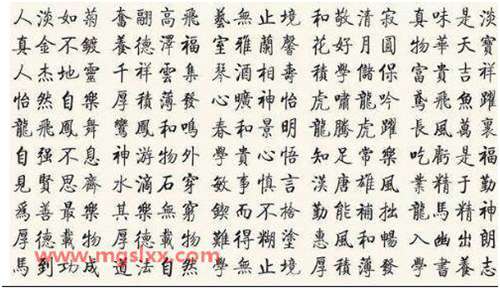 人淡如菊 奮翮高飛 藝無止境 和敬清寂 真味是淡
真金不鍍 養德澤福 室雅蘭馨 花好月圓 物華天寶
人杰地靈 千祥雲集 琴酒相壽 積學儲保 富貴吉祥
怡然自樂 厚積薄發 心曠神怡 虎嘯龍吟 鳶飛魚躍
龍飛鳳舞 鸞鳳和鳴 春和景明 龍騰虎躍 長風萬裏
自强不息 神游物外 學貴心悟 知足常樂 吃虧是福
見賢思齊 水滴石穿 敏事慎言 漢唐雄風 業精于勤
爲善最樂 其樂無窮 鍥而不捨 勤能補拙 龍馬精神
厚德載物 厚德載物 難得糊塗 惠風和暢 入幽出朗
馬到功成 道法自然 學無止境 厚積薄發 學書養
www.mgslxx.com